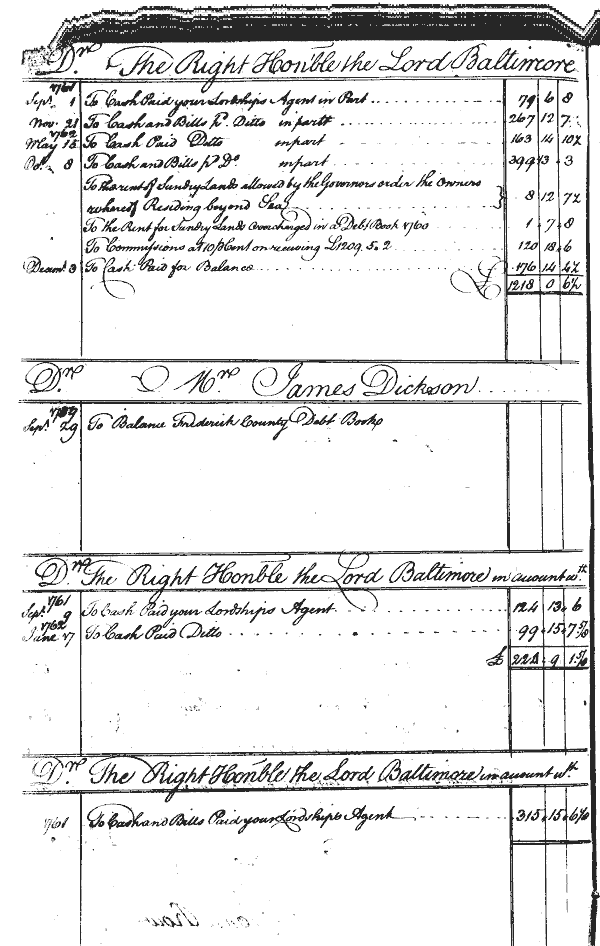 Dr. The Right Honble the Lord Baltimore
1761
Sept. 1 To Cash Paid your Lordships Agent in Part 79 6 8
Nov. 21 To Cash and Bills pd. Ditto in part 267 12 7
1762
May 15 To Cash Paid Ditto in part 163 14 10½
Oct. 8 To Cash and Bills pd. Do in part 399 13 3
To the rent of Sundry Lands allowed by the Governors order the owners
whereof Residing beyond Sea 8 12 7½
To the Rent for Sundry Lands overcharged in a Debt Book 1760 1 7 8
To Commissions at 10 p Cent on receiving £1209.5.2 120 18 6
Decem. 3 To Cash Paid for Balance 176 14 4½
£ 1218 0 6½
Dr. Mr. James Dickson
Sept. 29 To Balance Frederick County Debt Book
Dr. The Right Honble the Lord Baltimore in account wth.
1761
Sept. 9 To Cash Paid your Lordships Agent 124 13 6
1762
June 17 To Cash Paid Ditto 99 15 7 5/8
£ 224 9 1 5/8
Dr. The Right Honble the Lord Baltimore in account wth.
1761 To Cash and Bills Paid your Lordships Agent 315 15 6